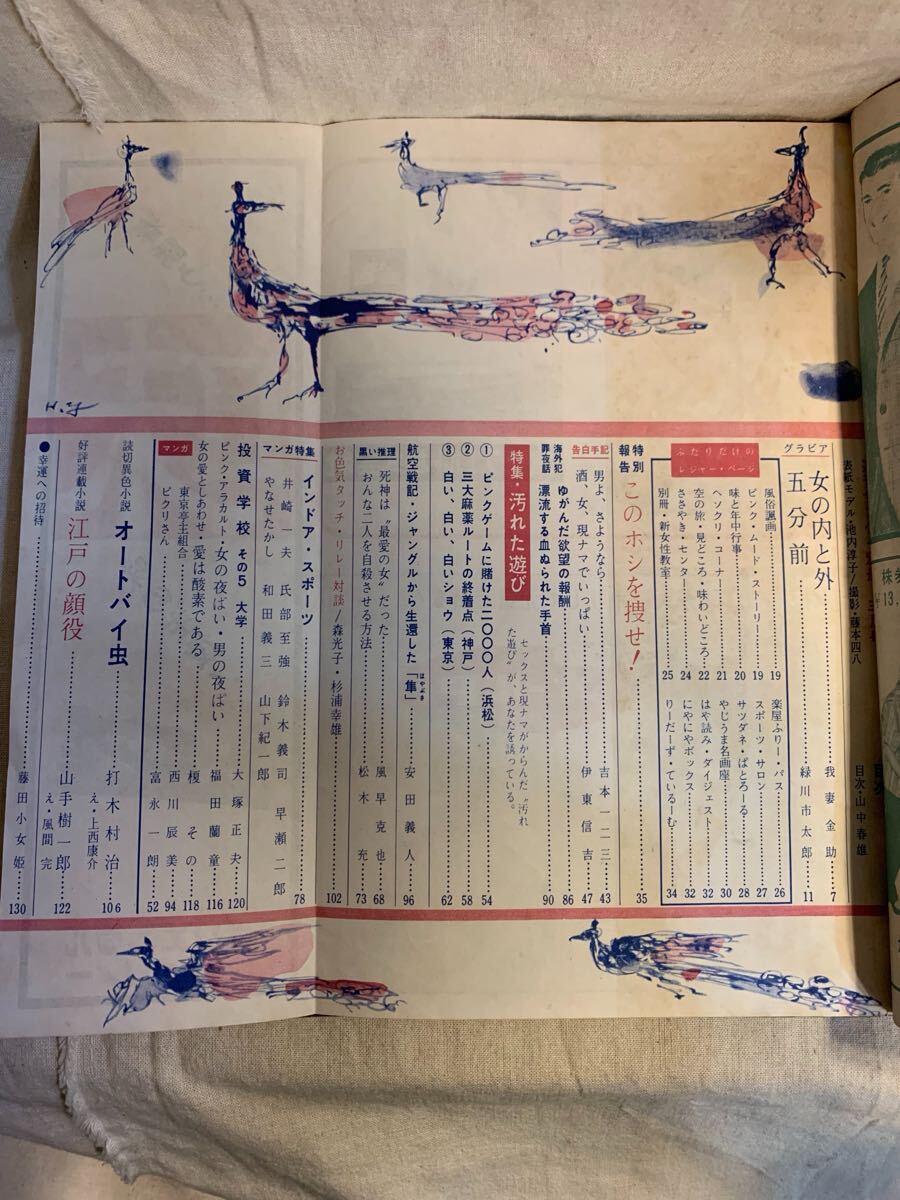 表紙モデル・池内淳子/撮影・藤本四八
目次・山中春雄
グラビア
女の内と外……我妻金助……7
五分前……緑川市太郎……11
ふたりだけのレジャー・ページ
風俗諷画……19
ピンク・ムード・ストーリー……19
味と年中行事……20
ヘソクリ・コーナー……21
空の旅・見どころ・味わいどころ…22
ささやき・センタ……24
別冊・新女性教室……25
楽屋ふりー・パス……26
スポーツ・サロン……27
サツダネ・ぱとろーる……28
やじうま名画座……30
はや読み・ダイジェスト……32
にやにやボックス……32
りーだーず・てぃるーむ……34
特別報告
このホシを捜せ!……35
告白手記
男よ、さようなら……吉本一二三……43
酒、女、現ナマでいっぱい……伊東信吉……47
海外犯罪夜話
ゆがんだ欲望の報酬……86
漂流する血ぬられた手首……90
特集・汚れた遊び
セックスと現ナマがからんだ“汚れた遊び”が、あなたを誘っている。
① ピンクゲームに賭けた二〇〇〇人(浜松)……54
② 三大麻薬ルートの終着点(神戸)……58
③ 白い、、白いショウ(東京)……62
航空戦記・ジャングルから生還した「隼」はやぶさ……安田義人……96
黒い推理
死神は“最愛の女”だった……風早克也……68
おんな二人を自殺させる方法……松木充……73
お色気タッチ・リレー対談/森光子・杉浦幸雄……102
マンガ特集
インドア・スポーツ……78
井崎一夫 氏部至強 鈴木義司 早瀬二郎
やなせたかし 和田義三 山下紀一郎
投資学校 その5 大学……大塚正夫……120
ピンク・アラカルト・女の夜ばい・男の夜ばい……福田蘭童……116
女の愛としあわせ・愛は酸素である……榎その……118
マンガ
東京亭主組合……西川辰美……94
ビクリさん……富永一朗……52
読切異色小説
オートバイ虫……打木村治……106
え・上西康介
好評連載小説
江戸の顔役……山手樹一郎……122
え・風間完
●幸運への招待……藤田小女姫……130